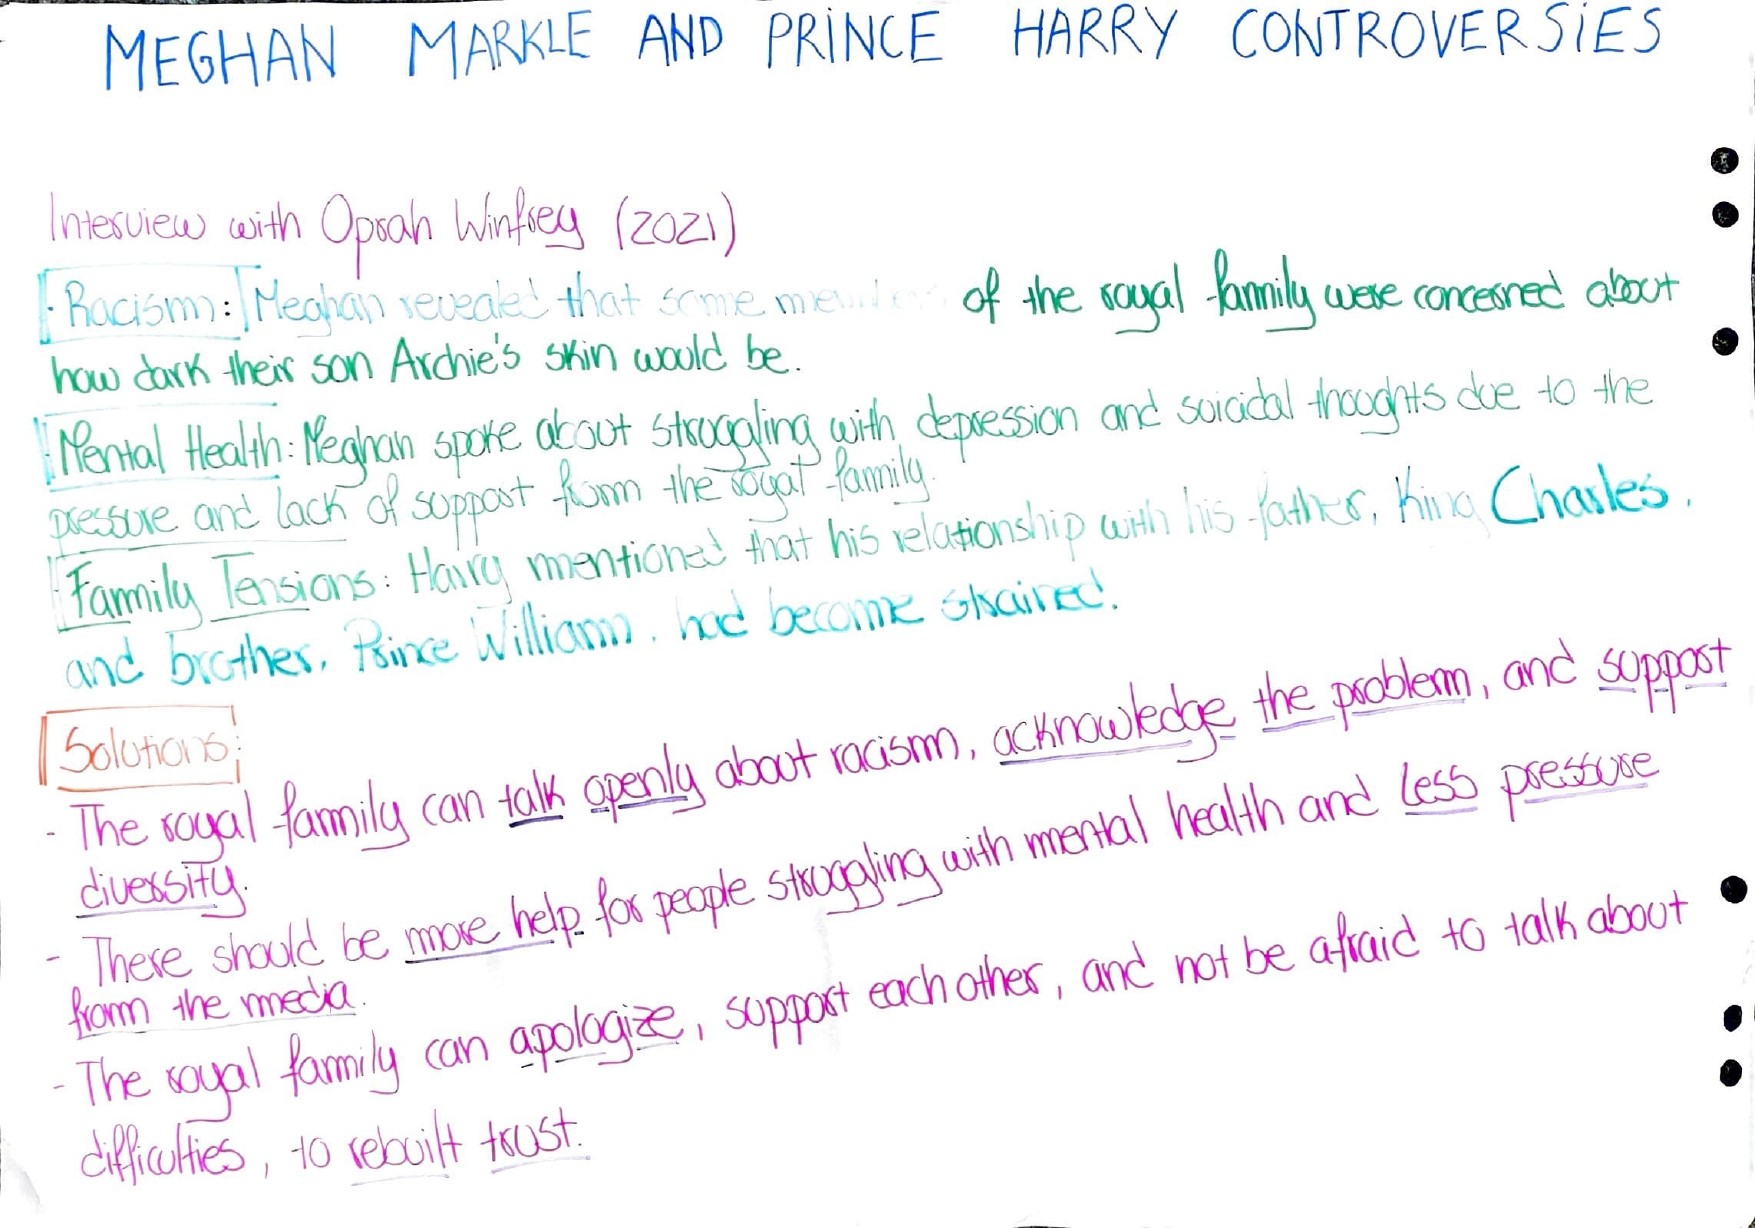 MEGHAN MARKLE AND PRINCE HARRY CONTROVERSIES
Interview with Oprah Winfrey (2021)
· Racism: Meghan revealed that some members of the royal family were concerned about
how dark their son Archie's skin would be.
· Mental Health: Meghan spoke about struggling with depression and suicidal thoughts due to the
pressure and lack of support from the royal family.
· Family Tensions: Harry mentioned that his relationship with his father, King Charles,
and brother, Prince William, had become straired.
Solutions:
- The royal family can talk openly about racism, acknowledge the problem, and support
diversity.
- There should be more help for people struggling with mental health and less pressure
from the media.
- The royal family can apologize, support each other, and not be afraid to talk about
difficulties, to rebuilt trust.